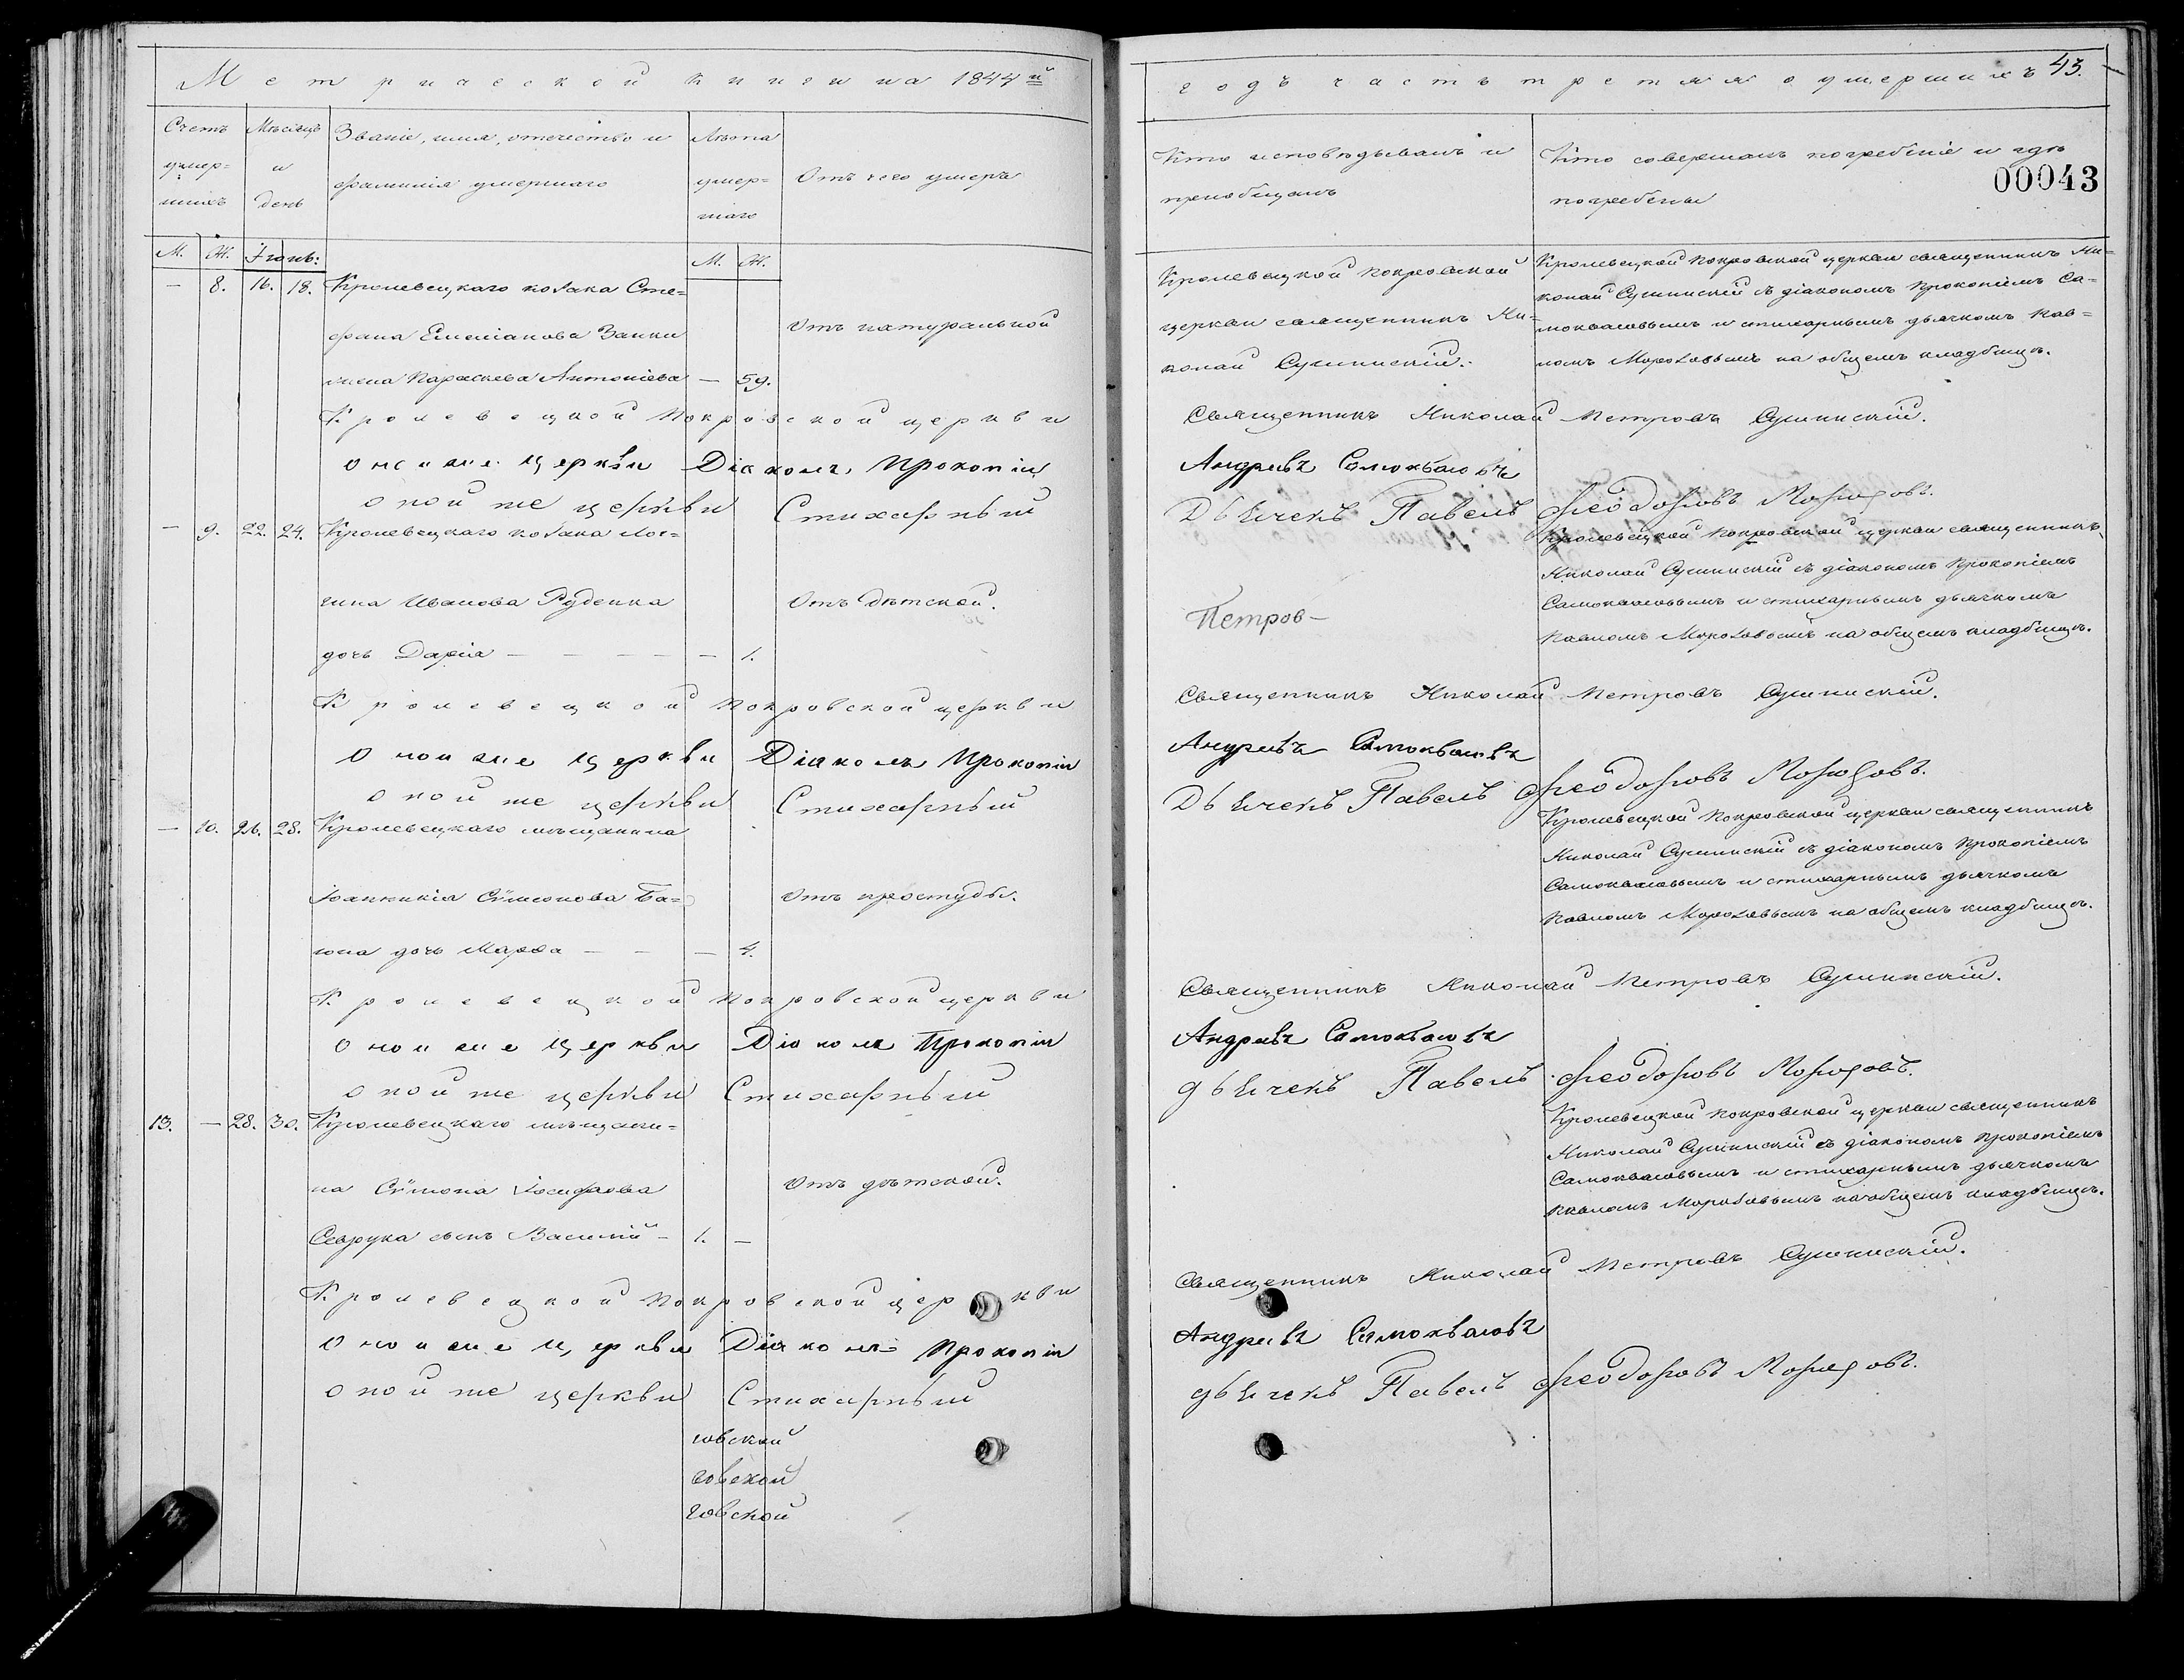 Метрической книги на 1844й
Счетъ умер=
шихъ
Мѣсяцъ
и
день
Званіе, имя, отечество и
фамилія умершаго
Лѣта
умер=
шаго
Отъ чего умеръ
М. Ж. Іюнь: М. Ж.
— 8. 16. 18. Кролевецкаго козака Сте=
фана Емеліанова Заики
жена Параскева Антоніева — 59.
Отъ натуральной
Кролевецкой Покровской церкви
Оной же церкви Діаконъ Прокопій
Оной же церкви Стихарный
— 9. 22. 24. Кролевецкаго козака Лог=
гина Иванова Руденка
дочь Дарія — — — — — 1.
Отъ дѣтской.
Кролевецкой Покровской церкви
Оной же церкви Діаконъ Прокопій
Оной же церкви Стихарный
— 10. 26. 28. Кролевецкаго мѣщанина
Іоанникія Сѵмеонова Ба=
юна дочь Марѳа — — — 4.
Отъ простуды.
Кролевецкой Покровской церкви
Оной же церкви Діаконъ Прокопій
Оной же церкви Стихарный
13. — 28. 30. Кролевецкаго мѣщани=
на Сѵмона Іосифова
Саврука сынъ Василій — 1. —
Отъ дѣтской.
Кролевецкой Покровской церкви
Оной же церкви Діаконъ Прокопій
Оной же церкви Стихарный
говской
говской
говской
годъ часть третяя о умершихъ 43.
Кто исповѣдывалъ и
пріобщалъ
Кто совершалъ погребеніе и гдѣ
погребены
00043
Кролевецкой Покровской
церкви священникъ Ни=
колай Сушинскій.
Кролевецкой Покровской церкви священникъ Ни=
колай Сушинскій съ діакономъ Прокопіемъ Са=
моквасовымъ и стихарнымъ дьячкомъ Пав=
ломъ Морозовымъ на общемъ кладбищѣ.
Священникъ Николай Петровъ Сушинскій.
Андреевъ Самоквасовъ
Дьячекъ Павелъ Феодоровъ Морозовъ.
Петров—
Кролевецкой Покровской церкви священникъ
Николай Сушинскій съ діакономъ Прокопіемъ
Самоквасовымъ и стихарнымъ дьячкомъ
Павломъ Морозовымъ на общемъ кладбищѣ.
Священникъ Николай Петровъ Сушинскій.
Андреевъ Самоквасовъ
Дьячекъ Павелъ Феодоровъ Морозовъ.
Кролевецкой Покровской церкви священникъ
Николай Сушинскій съ діакономъ Прокопіемъ
Самоквасовымъ и стихарнымъ дьячкомъ
Павломъ Морозовымъ на общемъ кладбищѣ.
Священникъ Николай Петровъ Сушинскій.
Андреевъ Самоквасовъ
дьячекъ Павелъ Феодоровъ Морозовъ.
Кролевецкой Покровской церкви священникъ
Николай Сушинскій съ діакономъ Прокопіемъ
Самоквасовымъ и стихарнымъ дьячкомъ
Павломъ Морозовымъ на общемъ кладбищѣ.
Священникъ Николай Петровъ Сушинскій.
Андреевъ Самоквасовъ
дьячекъ Павелъ Феодоровъ Морозовъ.